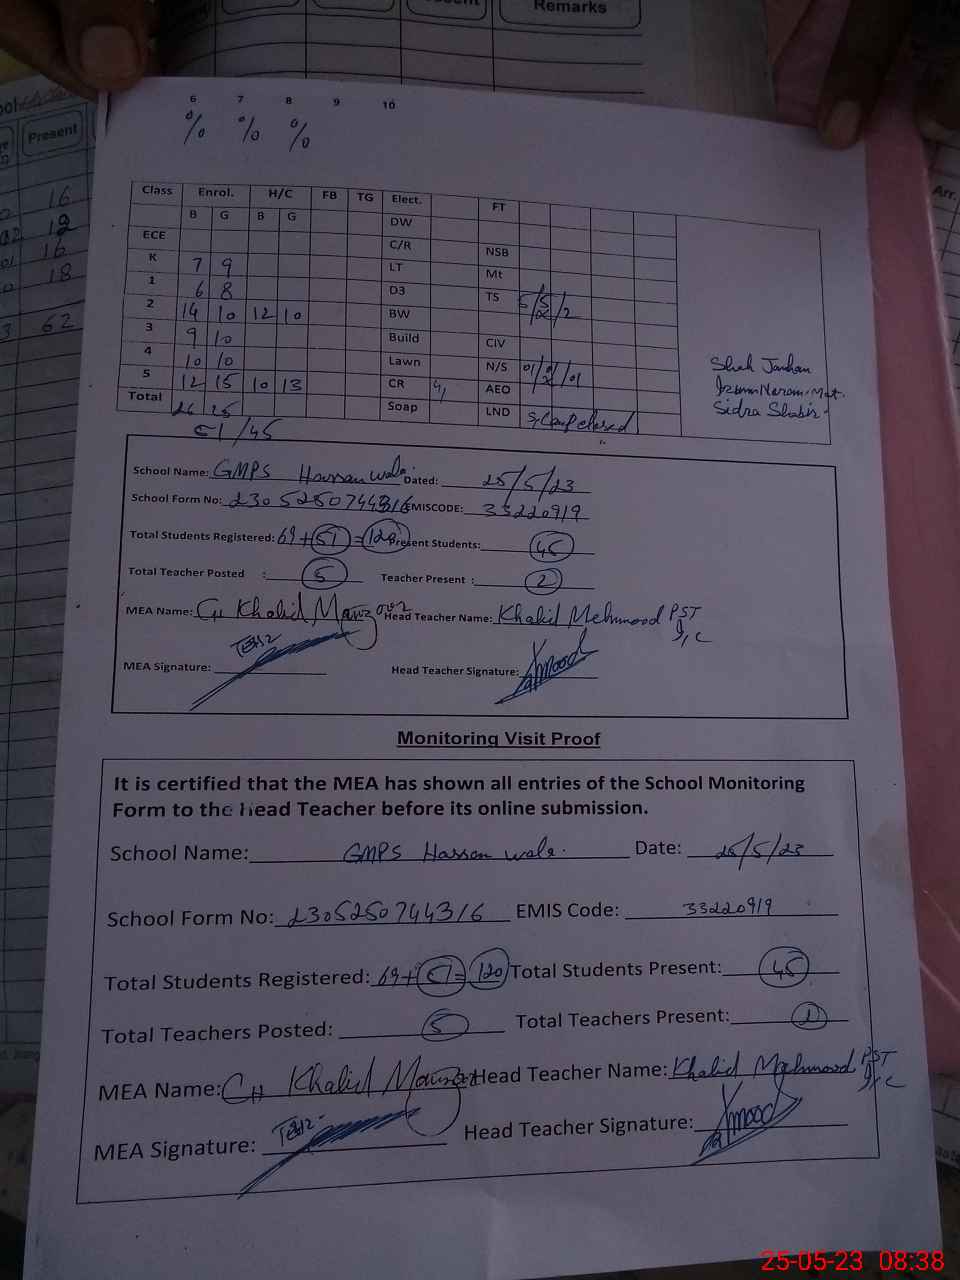 Remarks
Present
16
16
18
62
6 7 8 9 10
% % %
Class Enrol. H/C FB TG Elect. FT
B G B G DW
ECE C/R NSB
K 7 9 LT Mt
1 6 8 D3 TS 5/5/2
2 14 10 12 10 BW
3 9 10 Build CIV
4 10 10 Lawn N/S 01/01/01
5 12 15 10 13 CR 4, AEO
Total 26 25 Soap LND
51/45
Shah Janhan
Sidra Shabir
School Name: GMPS Hassan wale. Dated: 25/5/23
School Form No: 230525074316 EMISCODE: 33220919
Total Students Registered: 69+51=120 Present Students: 45
Total Teacher Posted : 5 Teacher Present : 2
MEA Name: CH Khalid Manzoor Head Teacher Name: Khalid Mehmood PST
I/C
MEA Signature: Head Teacher Signature:
Monitoring Visit Proof
It is certified that the MEA has shown all entries of the School Monitoring
Form to the Head Teacher before its online submission.
School Name: GMPS Hassan wale. Date: 25/5/23
School Form No: 2305250744316 EMIS Code: 33220919
Total Students Registered: 69+51=120 Total Students Present: 45
Total Teachers Posted: 5 Total Teachers Present: 2
MEA Name: CH Khalid Manzoor Head Teacher Name: Khalid Mehmood PST
I/C
MEA Signature: Head Teacher Signature:
25-05-23 08:38